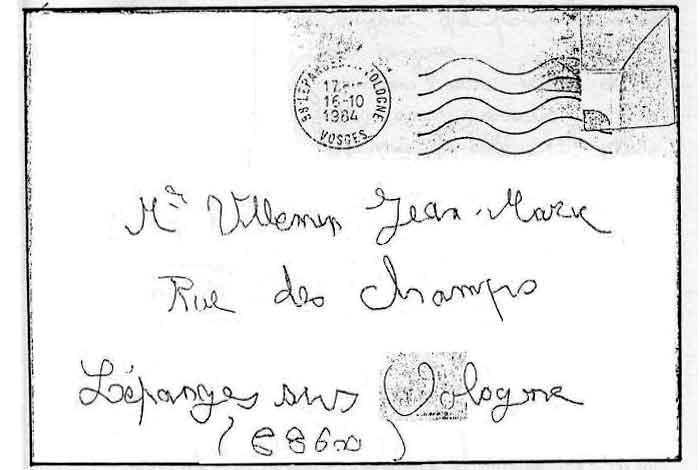 88-LÉPANGES OLOGNE
17
16-10
1984
VOSGES
Mr Villemin Jean-Mark
Rue des Champs
Lépanges sur Vologne
(88600)